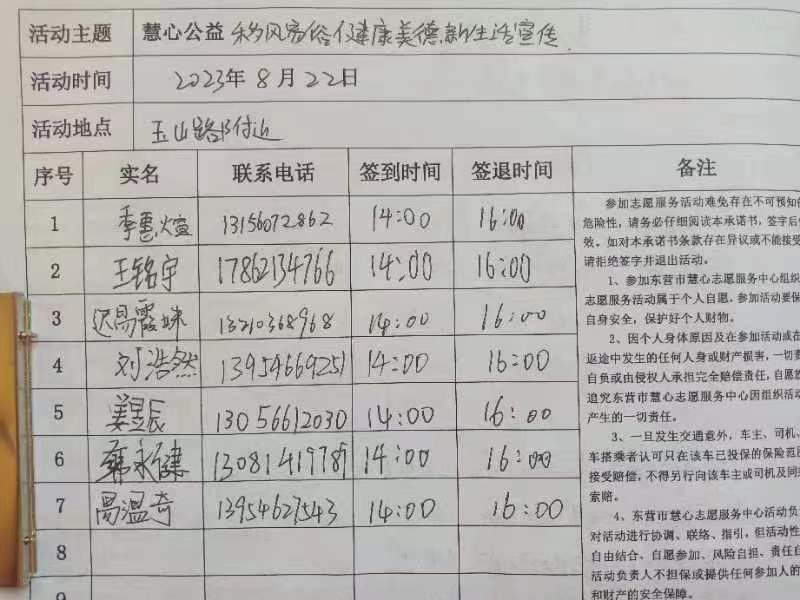 活动主题 慧心公益 移风易俗 健康美德新生活宣传
活动时间 2023年8月22日
活动地点 玉山路附近
序号 实名 联系电话 签到时间 签退时间 备注
1 季惠煊 13156072862 14:00 16:00
2 王铭宇 17862134766 14:00 16:00
3 13210368968 14:00 16:00
4 刘浩然 13954669251 14:00 16:00
5 姜昱辰 13056612030 14:00 16:00
6 永健 13081419789 14:00 16:00
7 温奇 13954627543 14:00 16:00
8
9
参加志愿服务活动难免存在不可预知的
危险性，请务必仔细阅读本承诺书，签字后
效。如对本承诺书条款存在异议或不能接受
请拒绝签字并退出活动。
1、参加东营市慧心志愿服务中心组织
志愿服务活动属于个人自愿，参加活动要保
自身安全，保护好个人财物。
2、因个人身体原因及在参加活动或在
返途中发生的任何人身或财产损害，一切责
自负或由侵权人承担完全赔偿责任，自愿放
追究东营市慧心志愿服务中心因组织活动
产生的一切责任。
3、一旦发生交通意外，车主、司机、
车搭乘者认可只在该车已投保的保险范围
接受赔偿，不得另行向该车主或司机及同
索赔。
4、东营市慧心志愿服务中心活动负
对活动进行协调、联络、指引，但活动性
自由结合、自愿参加、风险自担、责任自
活动负责人不担保或提供任何参加人的
和财产的安全保障。